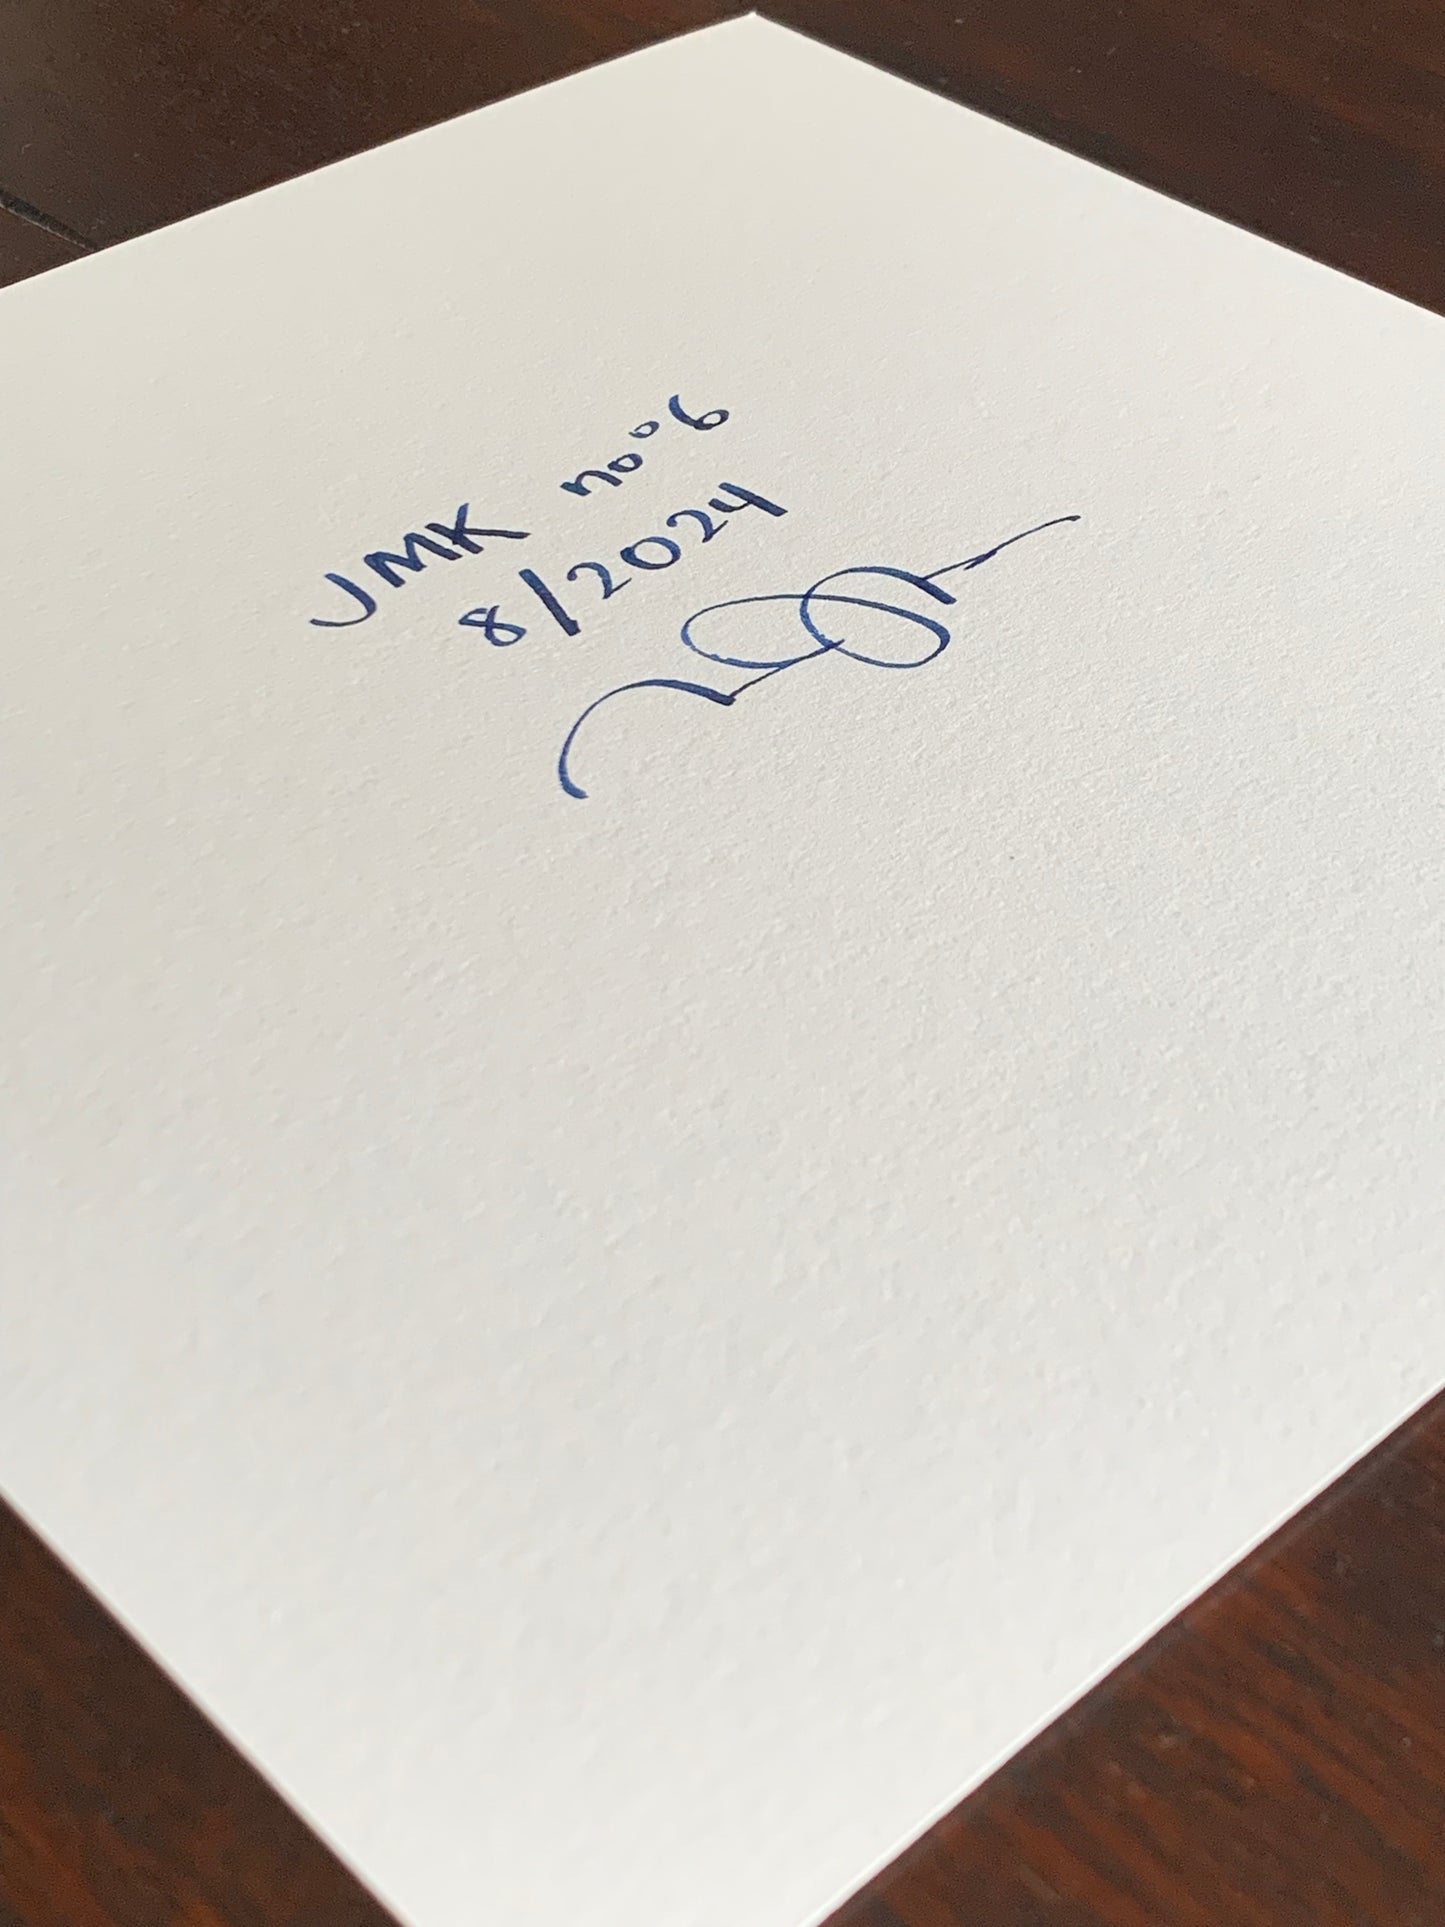 JMK no° 6
8/2024